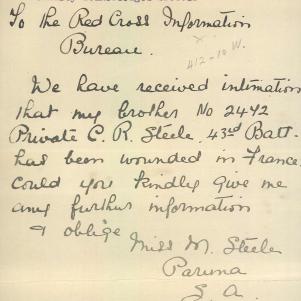 To the Red Cross Information
Bureau.
412-10 W.
We have received intimation
that my brother No 2472
Private C. R. Steele, 43rd Batt.
has been wounded in France.
Could you kindly give me
any further information
& oblige
Miss M. Steele
Paruna
S. A.